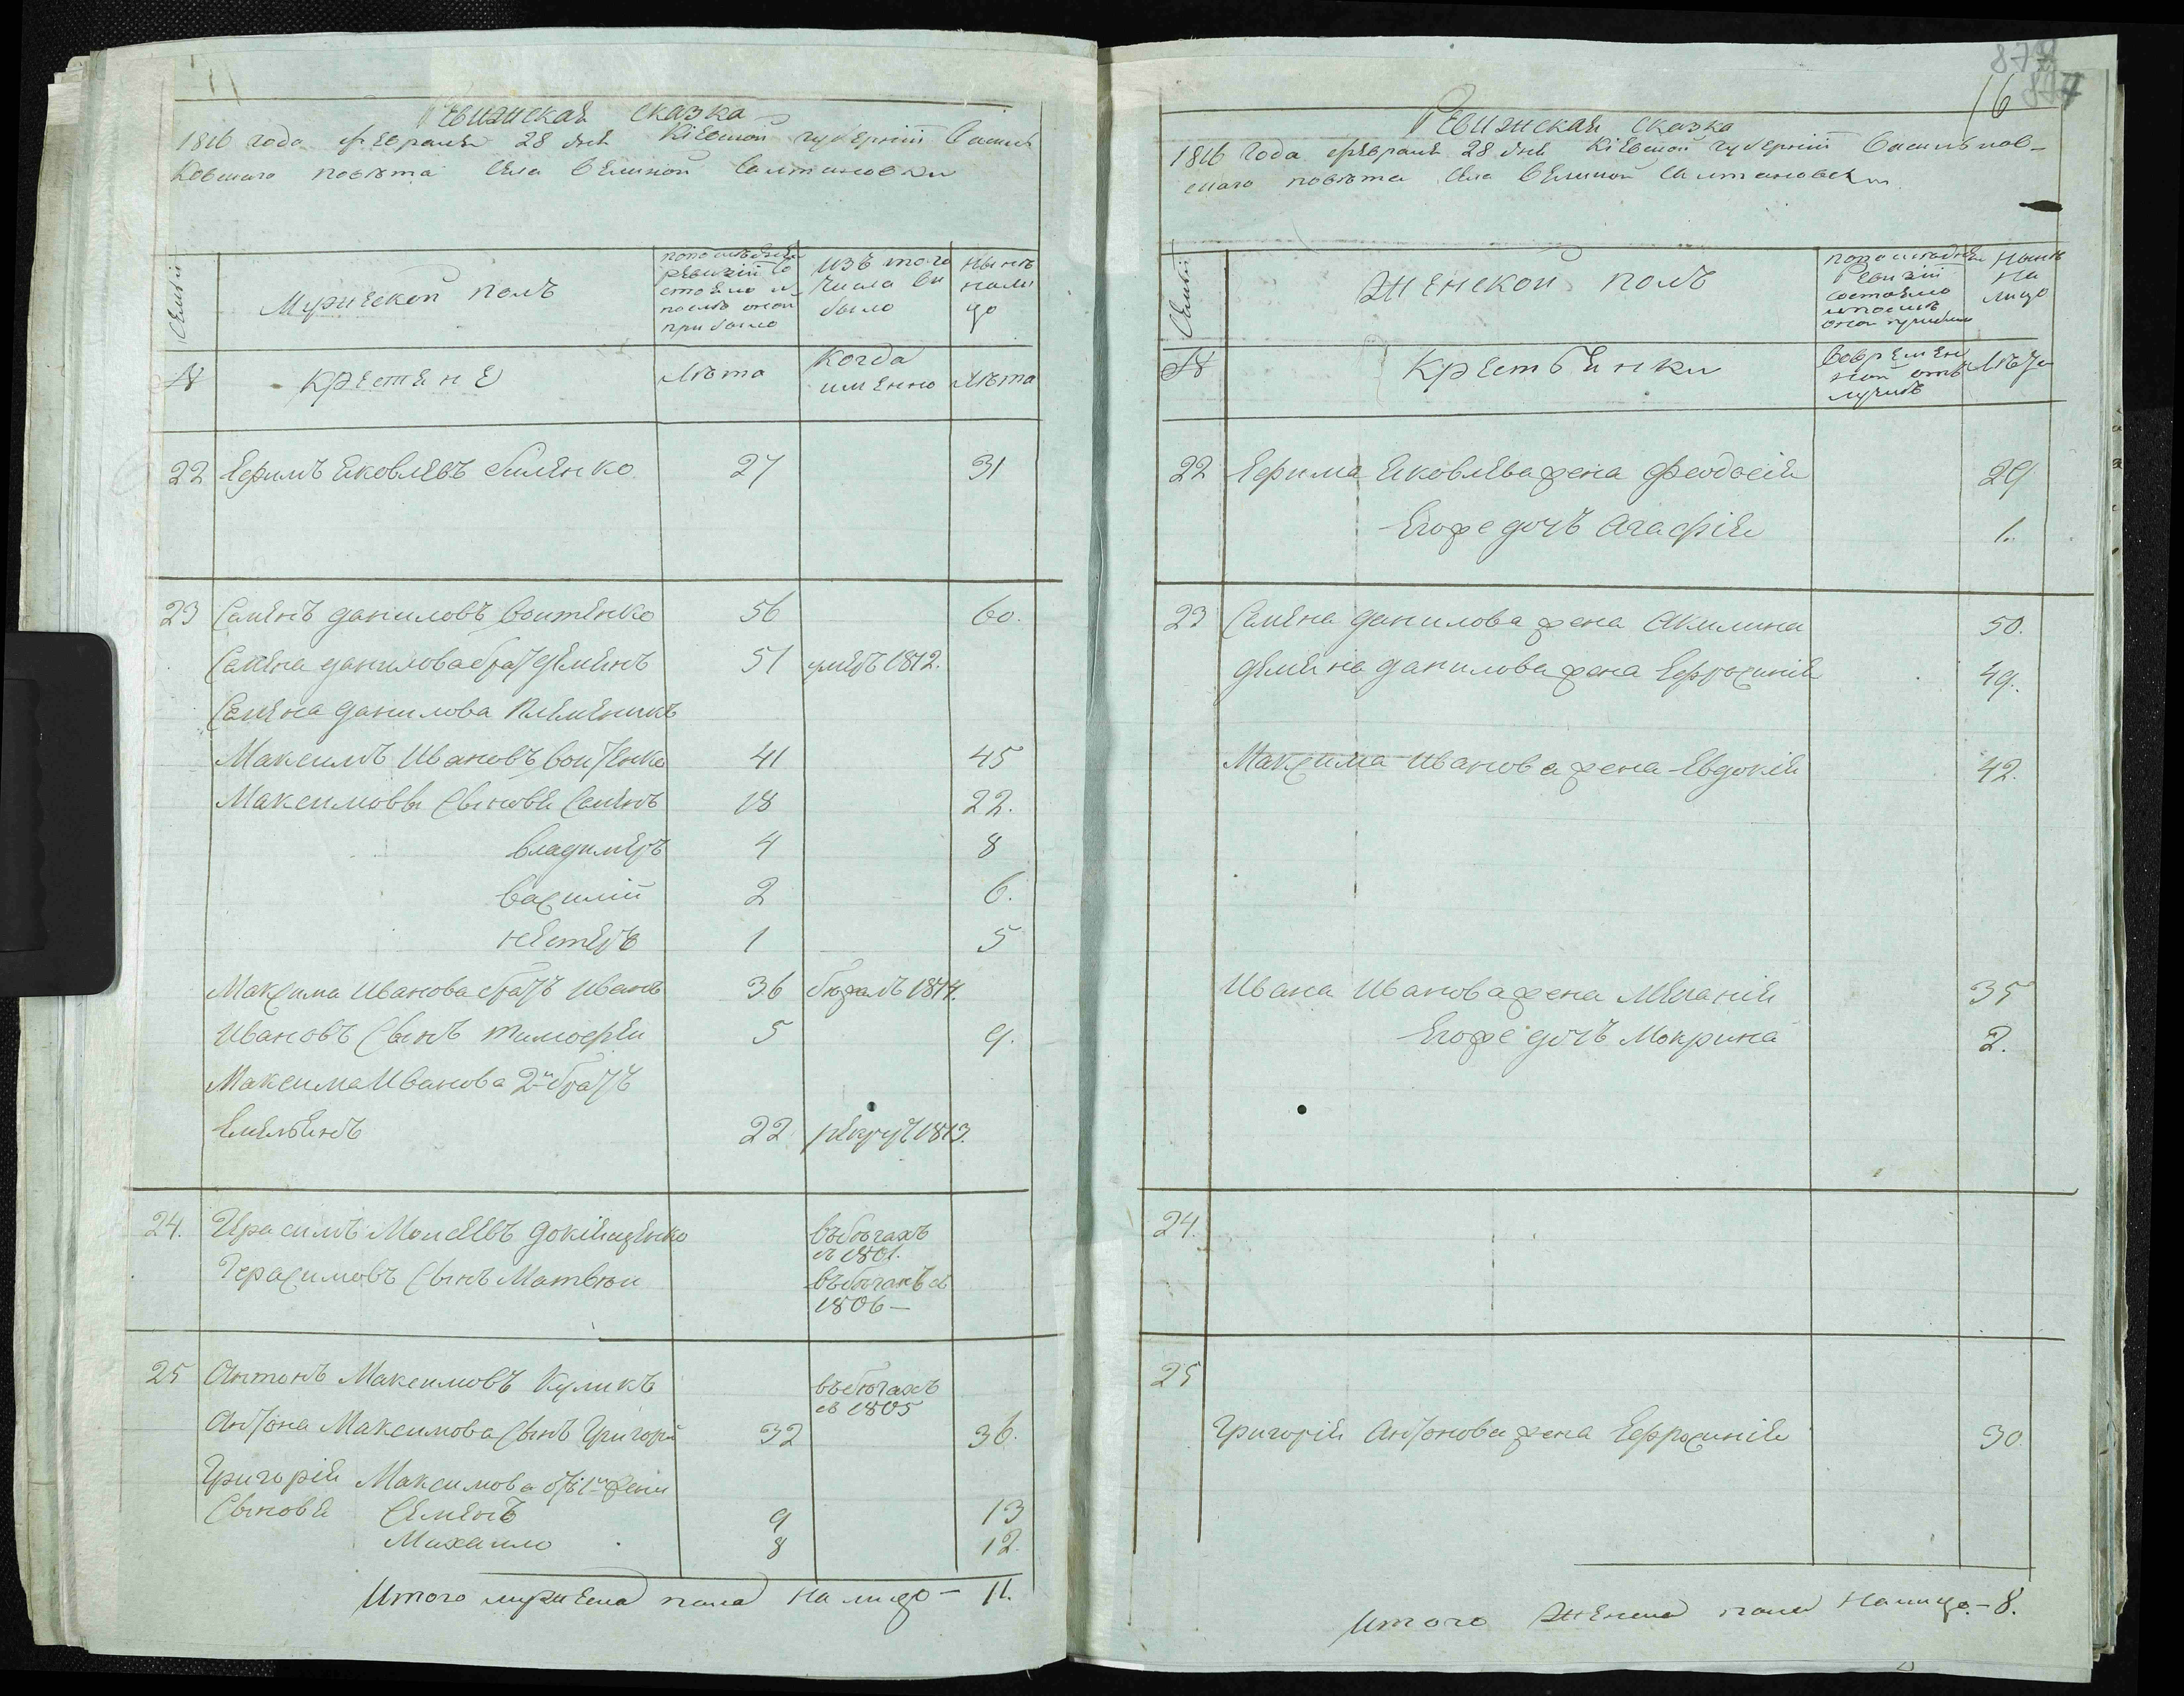 Ревизская сказка
1816 года февраля 28 дня Кіевской губерніи Василь
ковского повѣта Села Великой Салтановки
Семьи
Мужеской полъ
по последней
ревизіи со
стояло и
после оной
прибыло
Изъ того
числа вы
было
Нынѣ
нали
цо
№
Крестяне
Лѣта
Когда
именно
Лѣта
22 Ефимъ Яковлевъ Билѣнко 27 31
23 Семѣнъ Даниловъ Воитенко 56 60.
Семѣна Данилова братъ Демянъ 51 умеръ 1812.
Семѣна Данилова Племѣникъ
Максимъ Ивановъ Воитенко 41 45
Максимовы Сыновя Семѣнъ 18 22.
Владимѣръ 4 8
Василій 2 6.
Нестеръ 1 5
Максима Иванова братъ Иванъ 36 бежалъ 1814.
Ивановъ Сынъ Тимофѣи 5 9.
Максима Иванова 2й братъ
Емельянъ 22 рекрутъ 1813.
24. Герасимъ Моисеевъ
въ бѣгахъ
съ 1801.
Герасимовъ Сынъ Матвѣи
въ бѣгахъ съ
1806 —
25 Антонъ Максимовъ Куликъ
въ бѣгахъ
съ 1805
Антона Максимова Сынъ Григорій 32 36.
Григорія Максимова отъ 1й жены
Сыновя Семѣнъ 9 13
Михаило 8 12.
Итого мужеска пола на лицо — 11.
878
16
Ревизская сказка
1816 Года февраля 28 дня Кіевской губерніи Васильков-
ского повѣта Села Великой Салтановки
Семьи
Женской полъ
по последней
Ревизіи
состояло
и после
оной прибыло
Нынѣ
на
лицо
№
Крестьянки
Во времен
ной от
лучкѣ
Лѣта
22 Ефима Яковлева жена Феодосія 29
Его же дочь Агафія 1.
23 Семѣна Данилова жена Акилина 50.
Демяна Данилова жена Ефросинія 49.
Максима Иванова жена Евдокія 42.
Ивана Иванова жена Меланія 35
Его же дочь Мокрина 2.
24.
25
Григорія Антонова жена Ефросинія 30
Итого женска пола на лицо. — 8.